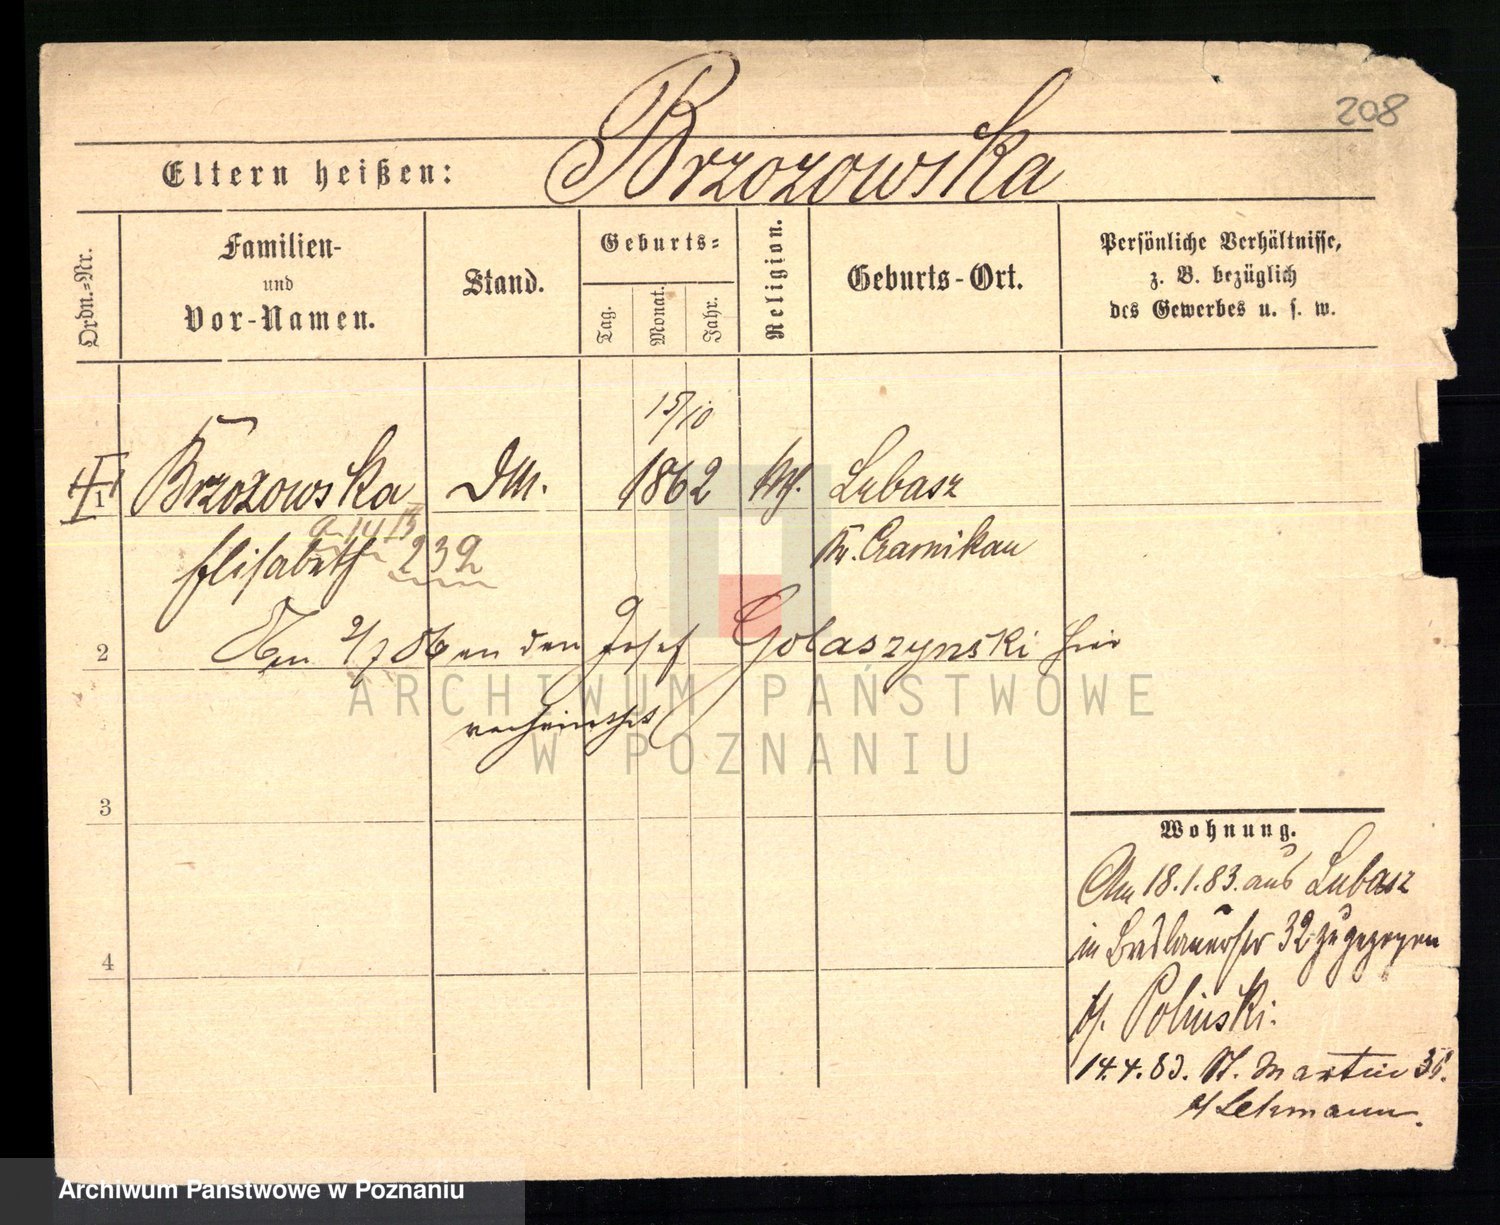 208
Eltern heißen: Brzozowska
Ordn.-Nr.
Familien-
und
Vor-Namen.
Stand.
Geburts-
Tag.
Monat.
Jahr.
Religion.
Geburts-Ort.
Persönliche Verhältnisse,
z. B. bezüglich
des Gewerbes u. s. w.
15/10
1
Brzozowska DM. 1862 kth. Lubasz
Elisabeth 239 Kr. Czarnikau
2 2/7 86 an den Josef Golaszynski hier
verheirathet
3
4
Wohnung.
Am 18.1.83. aus Lubasz
in Breslauerstr 32 zugezogen
b/. Polinski.
14.4.83. St. Martin
b/ Lehmann.
ARCHIWUM PAŃSTWOWE
W POZNANIU
Archiwum Państwowe w Poznaniu